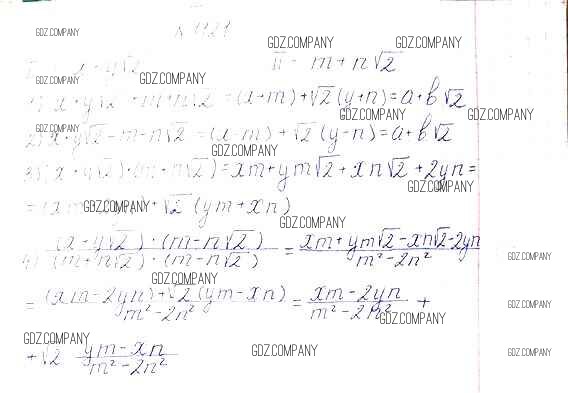 GDZ.COMPANY
№ 1121
GDZ.COMPANY GDZ.COMPANY
x + y√2 II - m + n√2
GDZ.COMPANY
1) x + y√2 + m + n√2 = (x+m) + √2 (y+n) = a + b√2
GDZ.COMPANY GDZ.COMPANY GDZ.COMPANY
2) x + y√2 - m - n√2 = (x-m) + √2 (y-n) = a + b√2
GDZ.COMPANY
3) (x + y√2)·(m + n√2) = xm + ym√2 + xn√2 + 2yn =
GDZ.COMPANY
= (xm GDZ.COMPANY + √2 (ym + xn)
GDZ.COMPANY
4) (x + y√2)·(m - n√2) / (m + n√2)·(m - n√2) = xm + ym√2 - xn√2 - 2yn / m² - 2n²
GDZ.COMPANY
GDZ.COMPANY
= (xm - 2yn) + √2 (ym - xn) / m² - 2n² = xm - 2yn / m² - 2n² +
GDZ.COMPANY
GDZ.COMPANY
GDZ.COMPANY
+ √2 ym - xn / m² - 2n²
GDZ.COMPANY GDZ.COMPANY